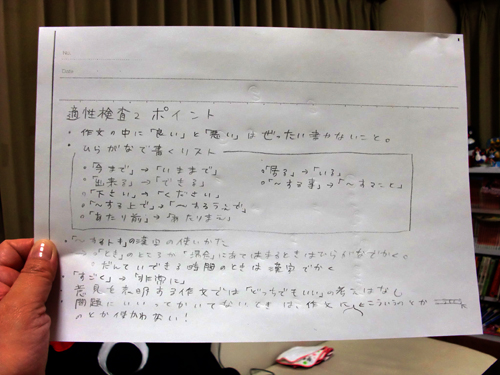 No.
Date
適性検査2 ポイント
・作文の中に「良い」と「悪い」はぜったい書かないこと。
・ひらがなで書くリスト
○「今まで」→「いままで」
○「居る」→「いる」
○「出来る」→「できる」
○「〜する事」→「〜すること」
○「下さい」の「ください」
○「〜する上で」→「〜するうえで」
○「あたり前」→「あたりまえ」
・「〜するとき」の漢字の使いかた
「とき」のところが「場合」にあてはまるときはひらがなでかく。
だんていできる時間のときは漢字でかく
・「すごく」→「非常に」
意見を表明する作文では「どっちでもいい」の考えはなし
問題にいいってかいてないときは、作文 こういうのとか
のとか使わない!